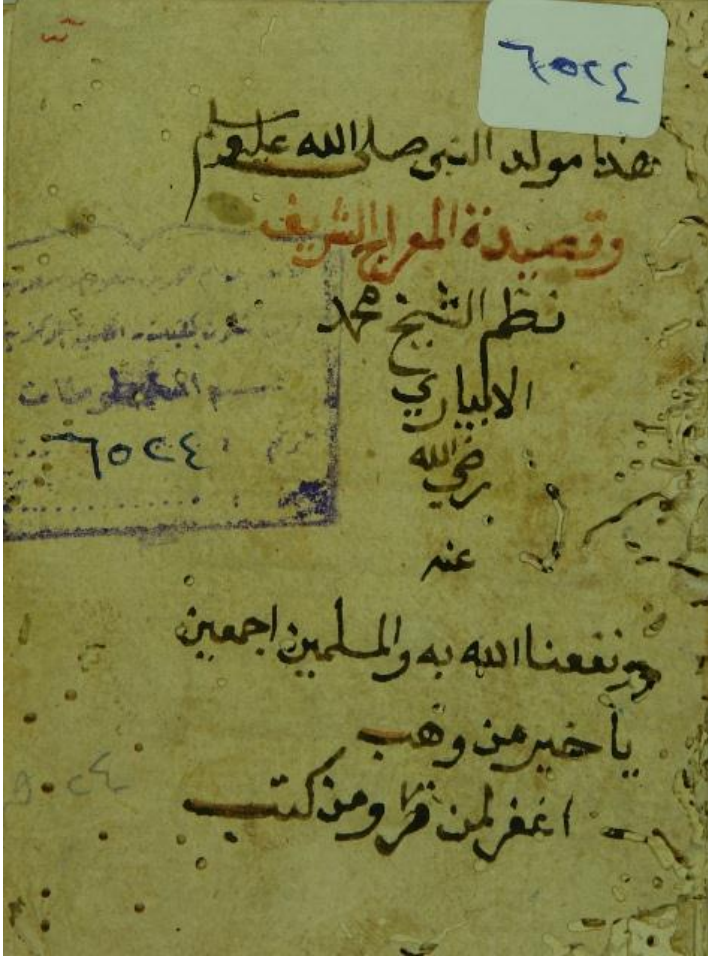 ٦٥٢٤
هذا مولد النبي صلى الله عليه وسلم
وقصيدة المعراج الشريف
نظم الشيخ محمد
الابياري
رضي الله
عنه
ونفعنا الله به والمسلمين اجمعين
يا خير من وهب
اغفر لمن قرا ومن كتب
قسم المخطوطات
٦٥٢٤